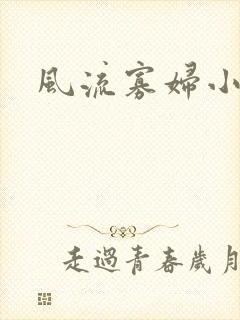 風流寡婦小
走過青春歲月